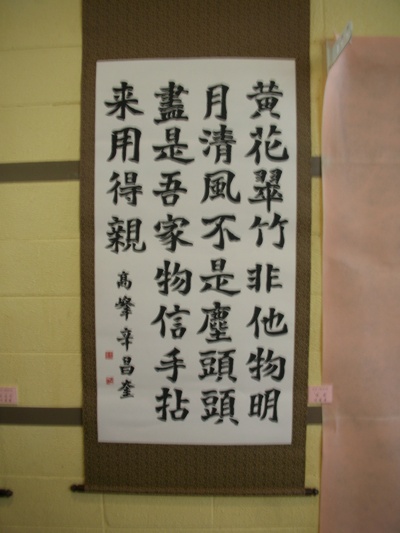 黄花翠竹非他物明
月清風不是塵頭頭
盡是吾家物信手拈
来用得親
高峯辛昌奎